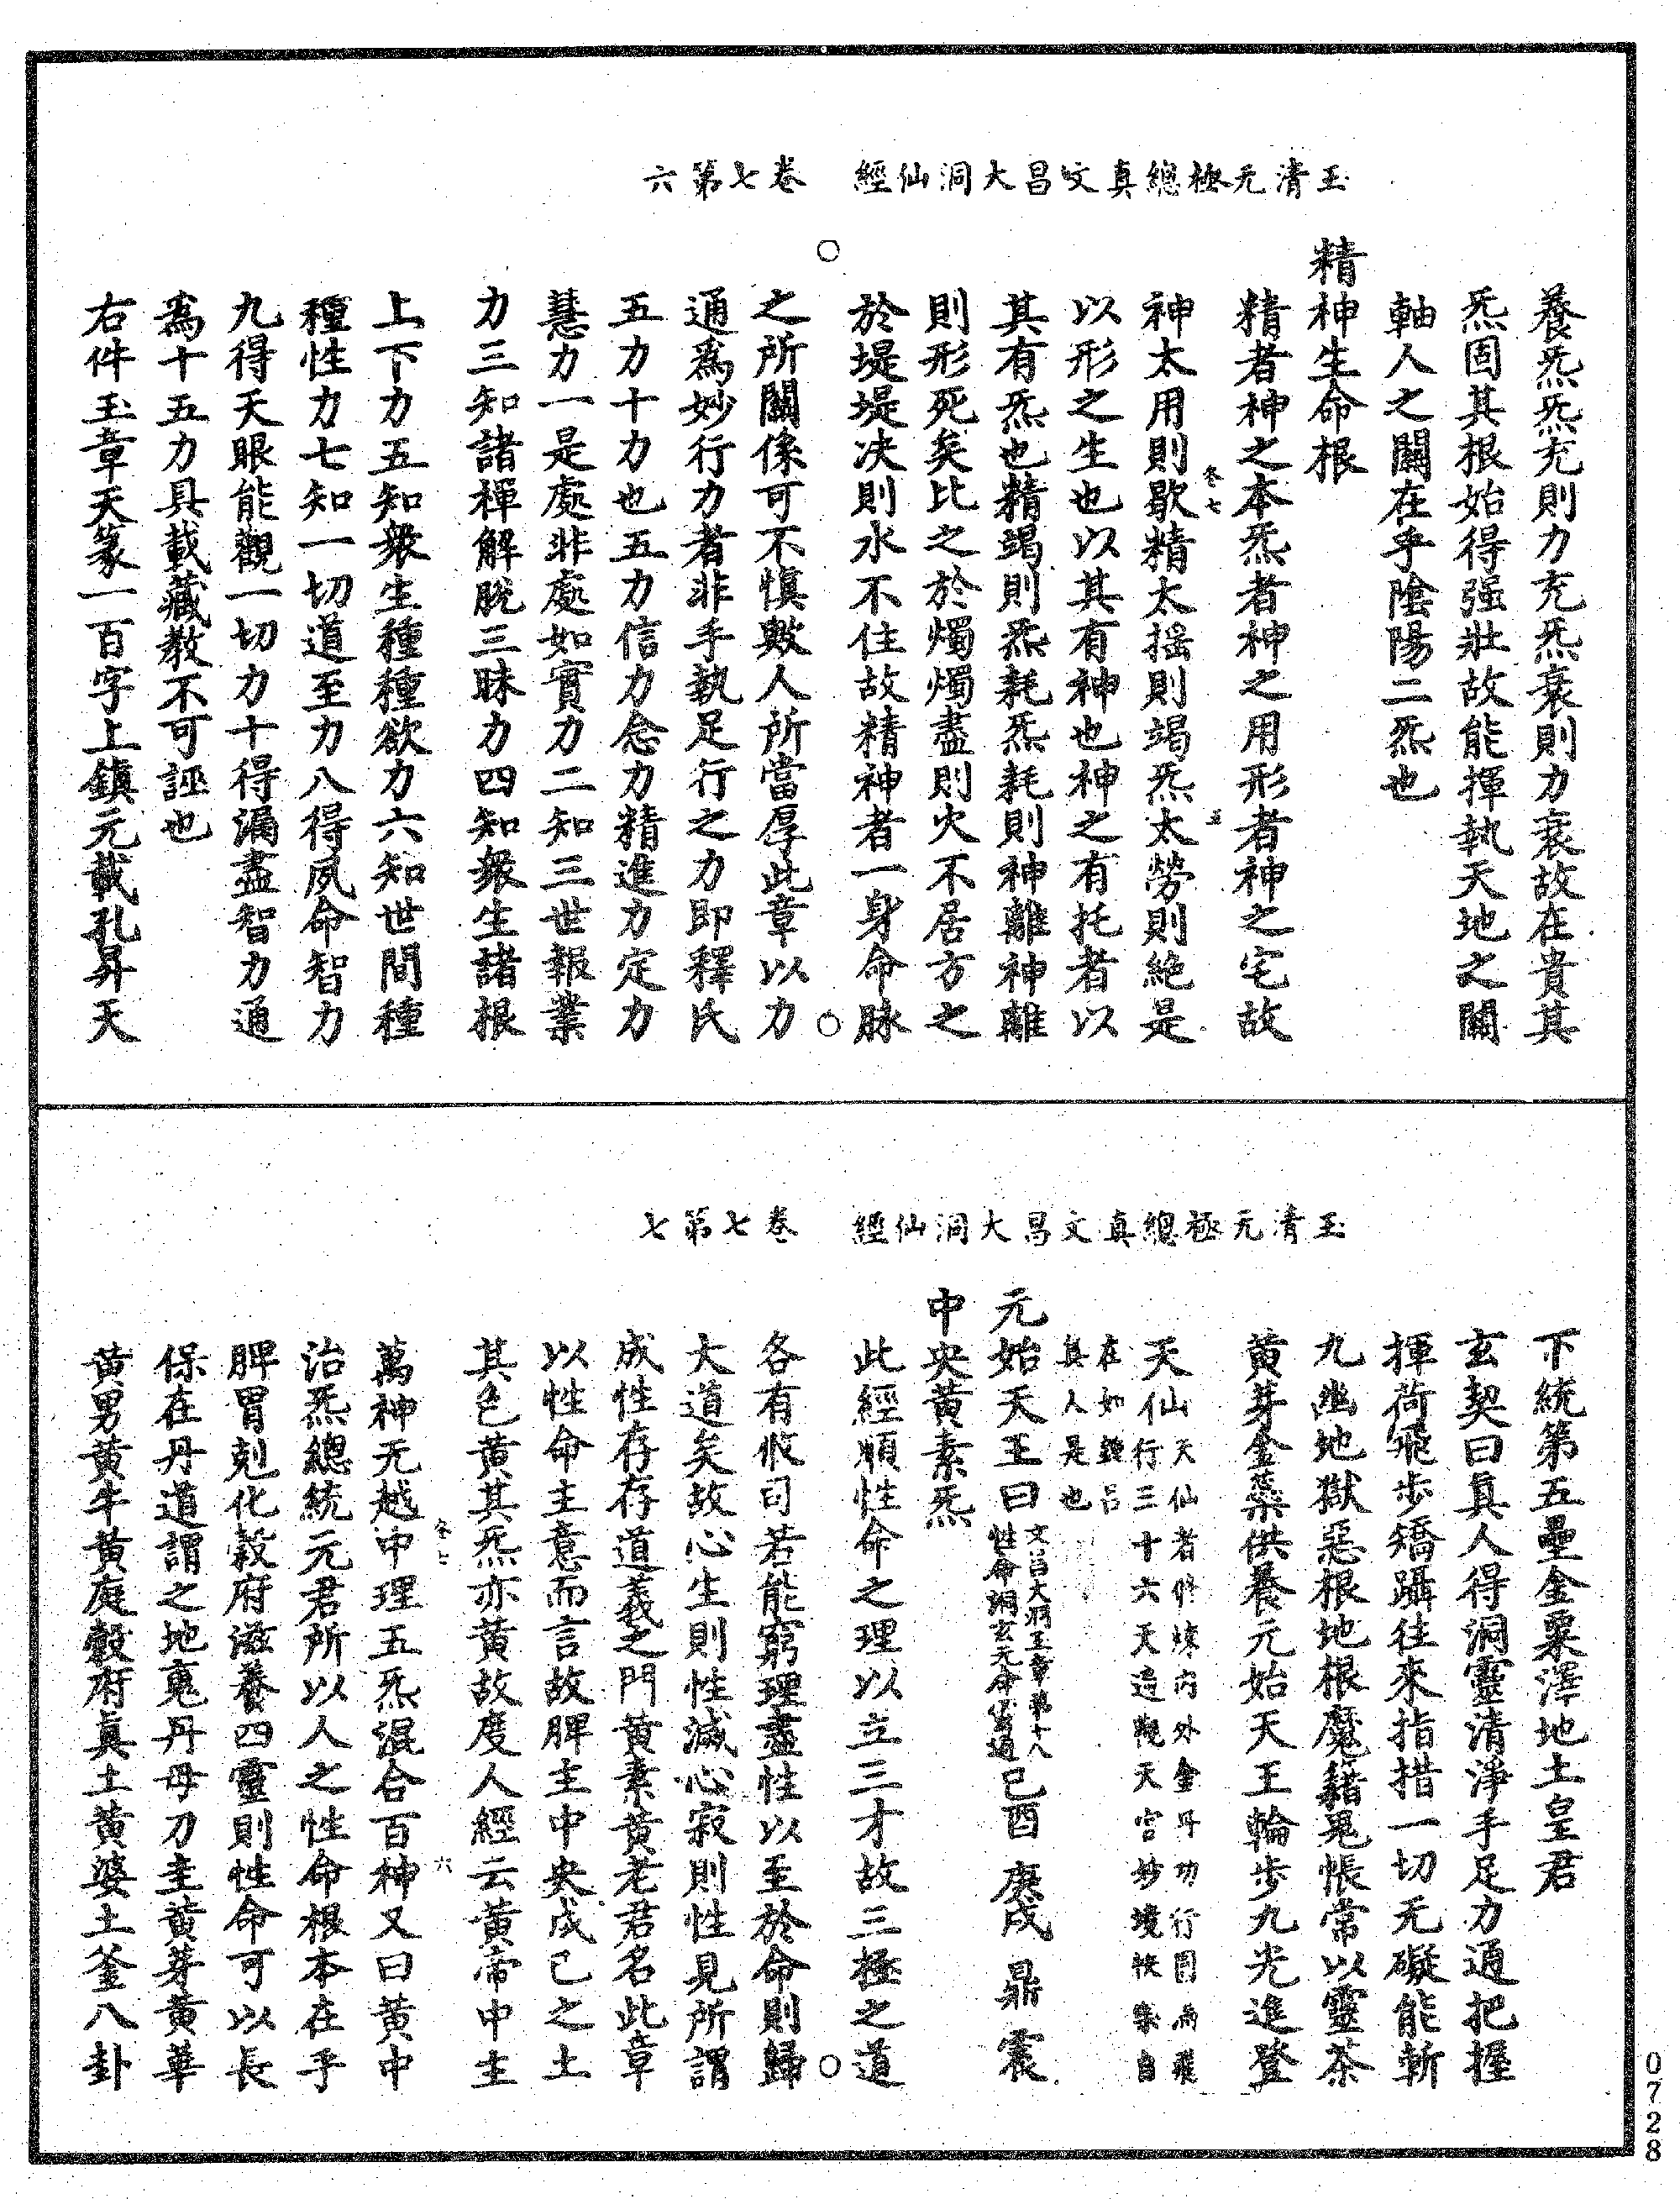 玉清元極總真文昌大洞仙經　卷七第六
養炁炁充則力充炁衰則力衰故在貴其
炁固其根始得强壯故能揮執天地之關
軸人之關在乎陰陽二炁也
精神生命根
精者神之本炁者神之用形者神之宅故
神太用則歇精太搖則竭炁太勞則絶是
以形之生也以其有神也神之有托者以
其有炁也精竭則炁耗炁耗則神離神離
則形死矣比之於燭燭盡則火不居方之
於堤堤决則水不住故精神者一身命脉
之所關係可不慎歟人所當厚此章以力
通爲妙行力者非手執足行之力即釋氏
五力十力也五力信力念力精進力定力
慧力一是處非處如實力二知三世報業
力三知諸禪解脫三昧力四知衆生諸根
上下力五知衆生種種欲力六知世間種
種性力七知一切道至力八得夙命智力
九得天眼能觀一切力十得漏盡智力通
爲十五力具載藏教不可誣也
右件玉章天篆一百字上鎮元載孔昇天
玉清元極總真文昌大洞仙經　卷七第七
下統第五壘金粟澤地土皇君
玄契曰真人得洞靈清淨手足力通把握
揮荷飛步矯躡往來指揩一切无礙能斬
九幽地獄惡根地根魔籍鬼帳常以靈茶
黄芽金藥供養元始天王輪步九光進登
天仙天仙者修煉内外金丹功行圓滿飛
行三十六天遊觀天宫妙境快樂自
在如鍾吕
真人是也
元始天王曰文昌大洞玉章第十八
性命洞玄元命 通己酉　庚戌　鼎　震
中央黄素炁
此經順性命之理以立三才故三極之道
各有攸司若能窮理盡性以至於命則歸
大道矣故心生則性滅心寂則性見所謂
成性存存道義之門黄素黄老君名此章
以性命主意而言故脾主中央戊己之土
其色黄其炁亦黄故度人經云黄帝中主
萬神无越中理五炁混合百神又曰黄中
治炁總統元君所以人之性命根本在乎
脾胃剋化穀府滋養四靈則性命可以長
保在丹道謂之地鬼丹母刀圭黄芽黄華
黄男黄牛黄庭穀府真土黄婆土釜八卦
冬七
五
冬七
六
0728